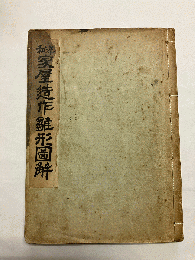 家屋造作雛形圖解